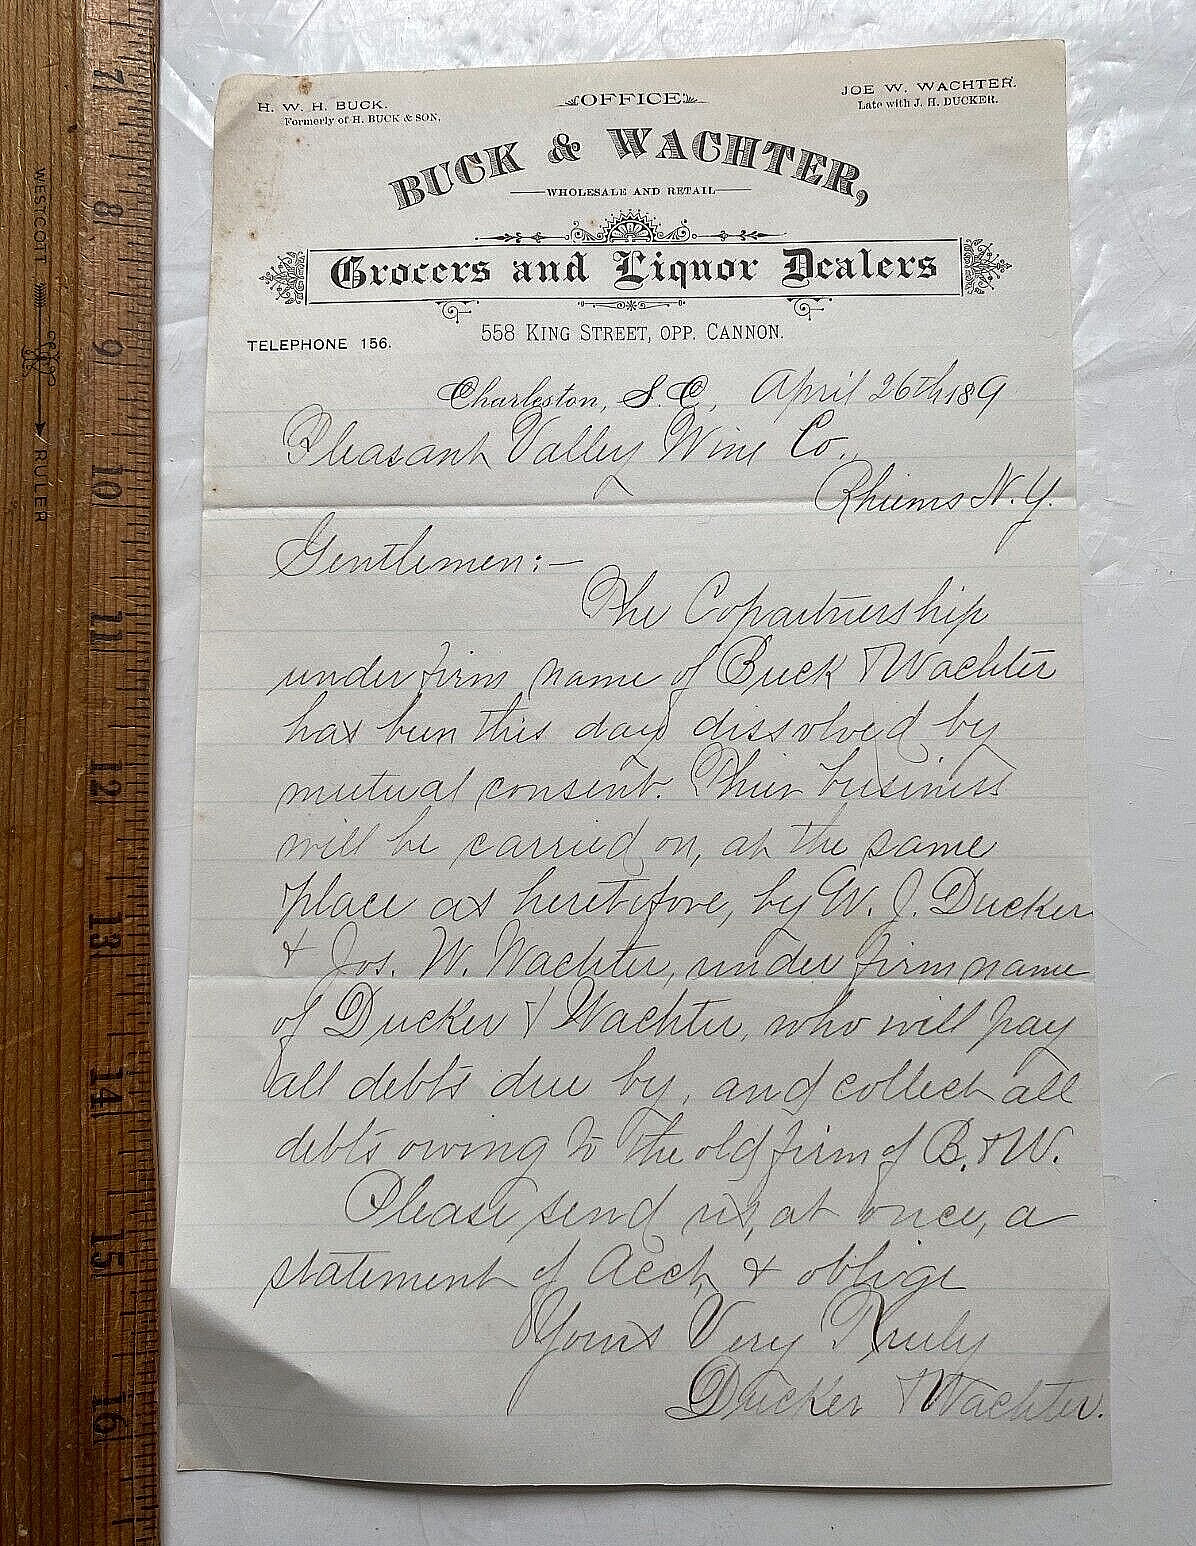 H. W. H. BUCK.
Formerly of H. BUCK & SON.
OFFICE
JOE W. WACHTER.
Late with J. H. DUCKER.
BUCK & WACHTER,
WHOLESALE AND RETAIL
Grocers and Liquor Dealers
TELEPHONE 156.
558 KING STREET, OPP. CANNON.
Charleston, S. C., April 26th 189
Pleasant Valley Wine Co.,
Rhiems N. Y.
Gentlemen:—
The Copartnership
under firm name of Buck & Wachter
has been this day dissolved by
mutual consent. Their business
will be carried on, at the same
place as heretofore, by W. J. Ducker
& Jos. W. Wachter, under firm name
of Ducker & Wachter, who will pay
all debts due by, and collect all
debts owing to the old firm of B. & W.
Please send us, at once, a
statement of Acct, & oblige
Yours Very Truly
Ducker & Wachter.
WESTCOTT
RULER
7
8
9
10
11
12
13
14
15
16